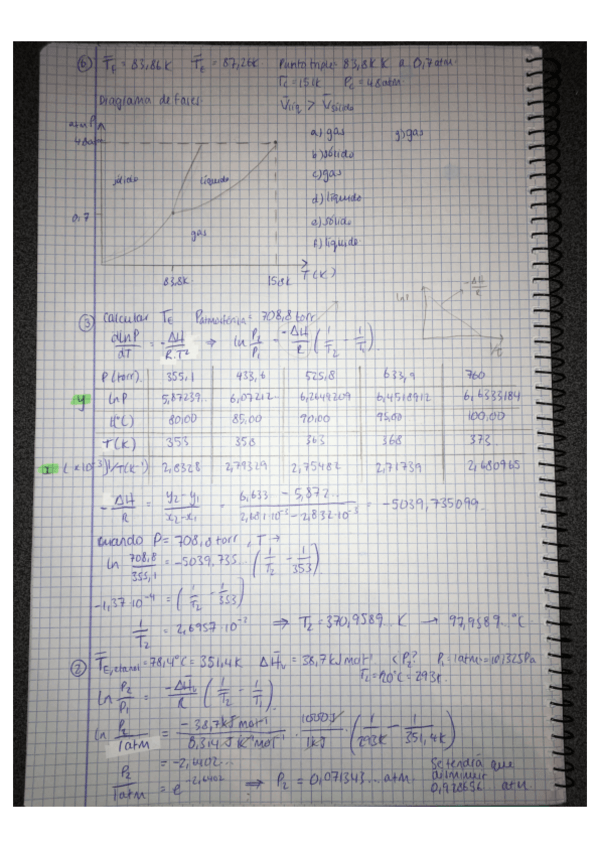 ⑥ T̄f = 83,86K T̄e = 87,26K Punto triple 83,8K K a 0,7atm.
Tc = 151K Pc = 48atm
Diagrama de fases V̄liq > V̄sólido
P
48
sólido
líquido
gas
0,7
83,8K 151K T(K)
a) gas g) gas
b) sólido
c) gas
d) líquido
e) sólido
f) líquido
lnP
-ΔH/R
1/T
③ Calcular TE Patmosférica = 708,8 torr
dLnP/dT = -ΔH/R.T² → ln P2/P1 = -ΔH/R (1/T2 - 1/T1)
P(torr) 355,1 433,6 525,8 633,9 760
y lnP 5,87239... 6,07212... 6,2649209 6,4518912 6,6333184
t(°C) 80,00 85,00 90,00 95,00 100,00
T(K) 353 358 363 368 373
x (×10⁻³) 1/T(K⁻¹) 2,8328 2,79329 2,75482 2,71739 2,680965
-ΔH/R = y2-y1/x2-x1 = 6,633 - 5,872.../2,681·10⁻³ - 2,832·10⁻³ = -5039,735099...
cuando P = 708,8 torr, T →
ln 708,8/355,1 = -5039,735... (1/T2 - 1/353)
-1,37·10⁻⁴ = (1/T2 - 1/353)
1/T2 = 2,6957·10⁻³ ⇒ T2 = 370,9589... K → 97,9589... °C
② T̄E,etanol = 78,4°C = 351,4K ΔH̄v = 38,7kJ mol⁻¹ ¿P2? P1 = 1atm = 101325Pa
T2 = 20°C = 293K
ln P2/P1 = -ΔH̄v/R (1/T2 - 1/T1)
ln P2/1atm = -38,7kJ mol⁻¹/8,314 J K⁻¹ mol⁻¹ · 1000J/1kJ · (1/293K - 1/351,4K)
= -2,6402...
P2/1atm = e^-2,6402 ⇒ P2 = 0,071343... atm.
Se tendrá que
disminuir
0,928656 atm